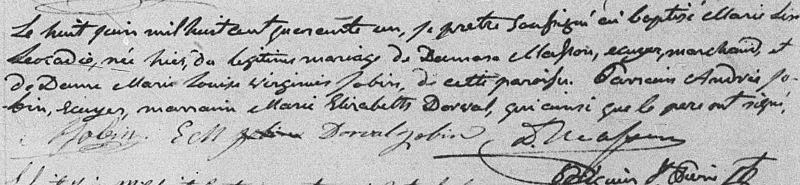 Le huit juin mil huit cent quarante un, je prêtre soussigné ai baptisé Marie
Leocadie, née hier, du légitime mariage de Damase Masson, ecuyer, marchand, et
de Dame Marie Louise Virginie Jobin, de cette paroisse. Parrain André Jo-
bin, Ecuyer, marraine Marie Elizabeth Dorval, qui ainsi que le pere ont signé,
Jobin. E M Dorval Jobin D Masson
Ptre